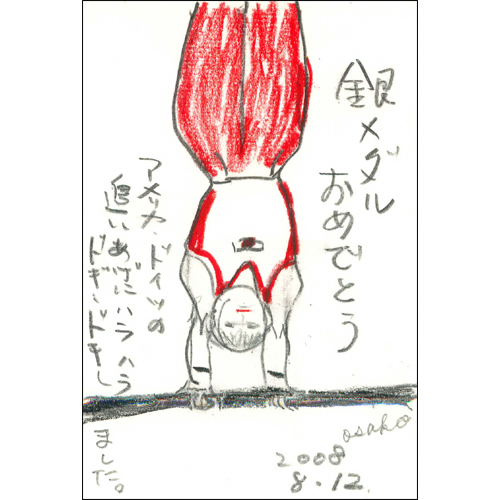 銀メダル
おめでとう
アメリカ・ドイツの
追いあげにハラハラ
ドギ・ドキし
ました。
osako
2008
8.12.